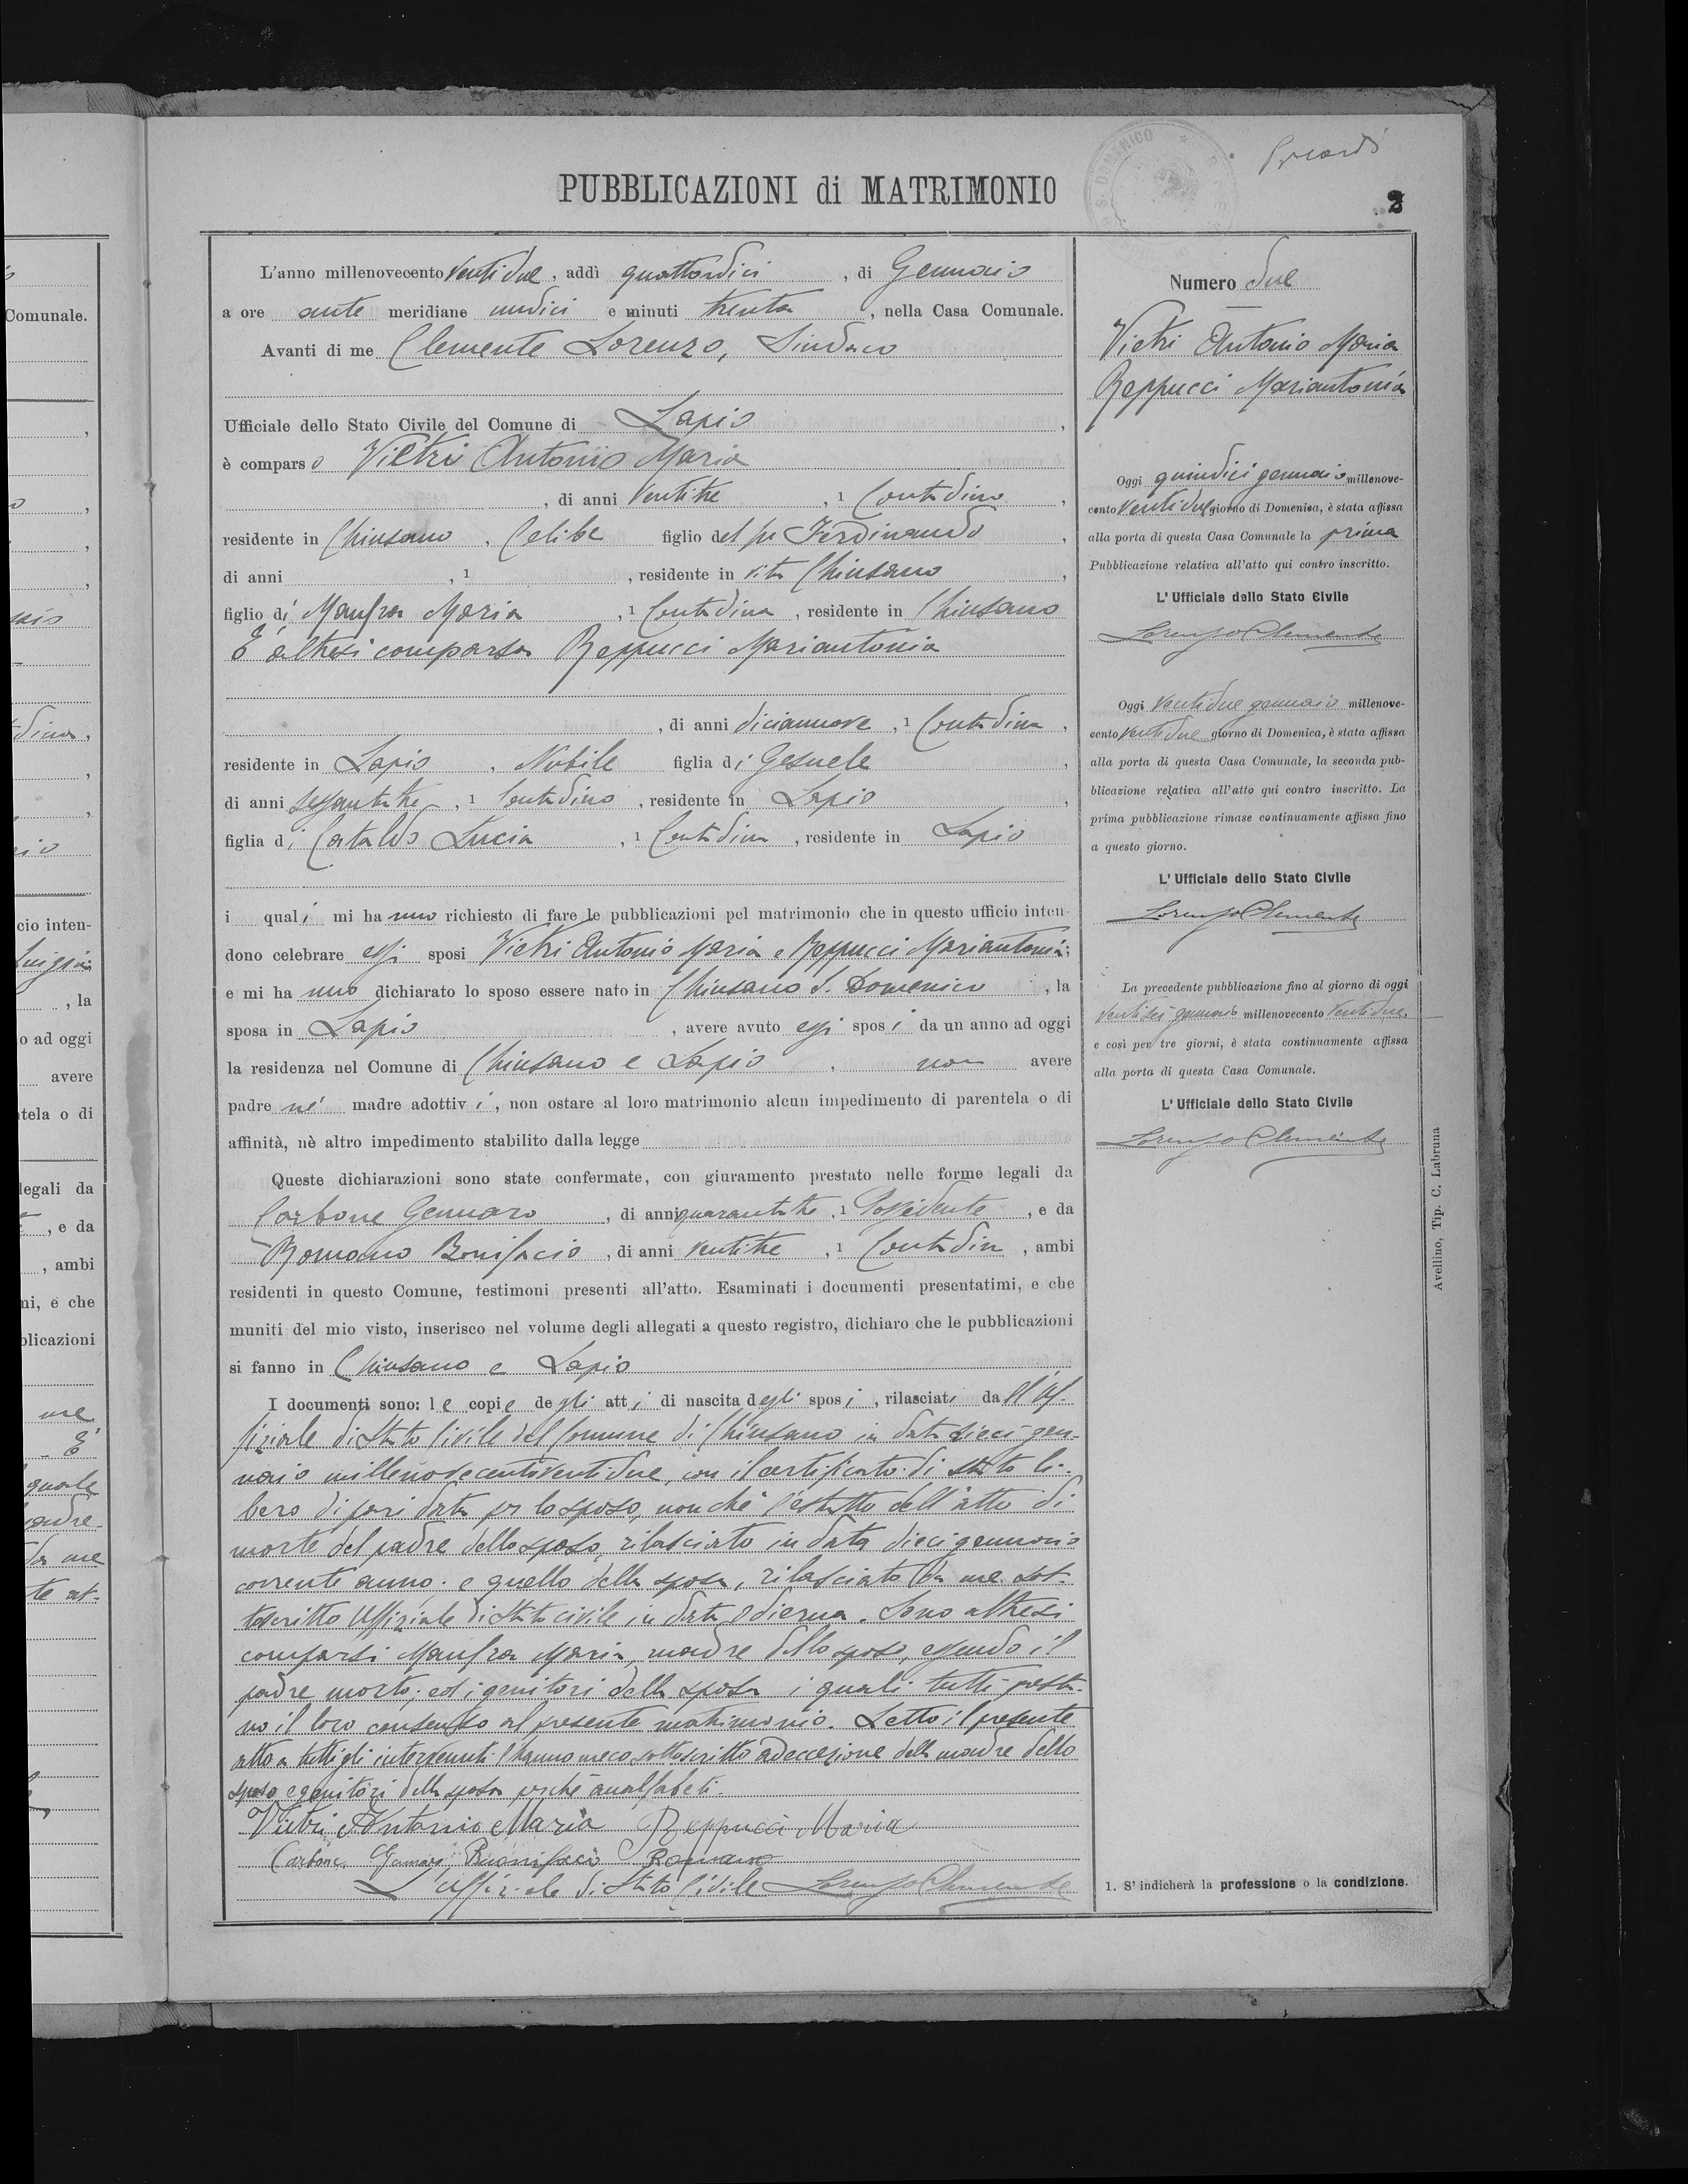 PUBBLICAZIONI di MATRIMONIO
S. DOMENICO
2
L'anno millenovecento ventidue, addì quattordici, di Gennaio
a ore ante meridiane undici e minuti trenta, nella Casa Comunale.
Avanti di me Clemente Lorenzo, Sindaco
Ufficiale dello Stato Civile del Comune di Lapio,
è comparso Vietri Antonio Maria
, di anni ventitre, 1 Contadino,
residente in Chiusano, Celibe figlio del fu Ferdinando,
di anni , 1 , residente in vita Chiusano,
figlio di Manfra Maria, 1 Contadina, residente in Chiusano
È altresì comparsa Reppucci Mariantonia
, di anni diciannove, 1 Contadina,
residente in Lapio, Nubile figlia di Gesuele,
di anni sessantatre, 1 Contadino, residente in Lapio,
figlia di Cataldo Lucia, 1 Contadina, residente in Lapio
i quali mi hanno richiesto di fare le pubblicazioni pel matrimonio che in questo ufficio inten-
dono celebrare essi sposi Vietri Antonio Maria e Reppucci Mariantonia;
e mi hanno dichiarato lo sposo essere nato in Chiusano S. Domenico, la
sposa in Lapio, avere avuto essi sposi da un anno ad oggi
la residenza nel Comune di Chiusano e Lapio, non avere
padre né madre adottivi, non ostare al loro matrimonio alcun impedimento di parentela o di
affinità, nè altro impedimento stabilito dalla legge
Queste dichiarazioni sono state confermate, con giuramento prestato nelle forme legali da
Carbone Gennaro, di anni quarantatre, 1 Possidente, e da
Romano Bonifacio, di anni ventitre, 1 Contadin, ambi
residenti in questo Comune, testimoni presenti all'atto. Esaminati i documenti presentatimi, e che
muniti del mio visto, inserisco nel volume degli allegati a questo registro, dichiaro che le pubblicazioni
si fanno in Chiusano e Lapio
I documenti sono: le copie degli atti di nascita degli sposi, rilasciati dall'Uf-
fiziale di Stato Civile del Comune di Chiusano in data dieci gen-
naio millenovecentoventidue, con il certificato di stato li-
bero di pari data per lo sposo, nonché l'estratto dell'atto di
morte del padre dello sposo, rilasciato in data dieci gennaio
corrente anno. e quello della sposa, rilasciato da me sot-
toscritto Uffiziale di Stato civile in data odierna. Sono altresì
comparsi Manfra Maria, madre dello sposo, essendo il
padre morto, ed i genitori della sposa i quali tutti presta-
no il loro consenso al presente matrimonio. Letto il presente
atto a tutti gli intervenuti l'hanno meco sottoscritto ad eccezione della madre dello
sposo e genitori della sposa perché analfabeti.
Vietri Antonio Maria Reppucci Maria
Carbone Gennaro Buonifacio Romano
L'Uffiziale di Stato Civile Lorenzo Clemente
Numero due
Vietri Antonio Maria
Reppucci Mariantonia
Oggi quindici gennaio millenove-
cento ventidue giorno di Domenica, è stata affissa
alla porta di questa Casa Comunale la prima
Pubblicazione relativa all'atto qui contro inscritto.
L'Ufficiale dello Stato Civile
Lorenzo Clemente
Oggi ventidue gennaio millenove-
cento ventidue giorno di Domenica, è stata affissa
alla porta di questa Casa Comunale, la seconda pub-
blicazione relativa all'atto qui contro inscritto. La
prima pubblicazione rimase continuamente affissa fino
a questo giorno.
L'Ufficiale dello Stato Civile
Lorenzo Clemente
La precedente pubblicazione fino al giorno di oggi
gennaio millenovecento ventidue
e così per tre giorni, è stata continuamente affissa
alla porta di questa Casa Comunale.
L'Ufficiale dello Stato Civile
Lorenzo Clemente
Avellino, Tip. C. Labruna
1. S'indicherà la professione o la condizione.
Comunale.
cio inten-
, la
o ad oggi
avere
tela o di
legali da
, e da
, ambi
ni, e che
blicazioni
me
È
quale
padre
da me